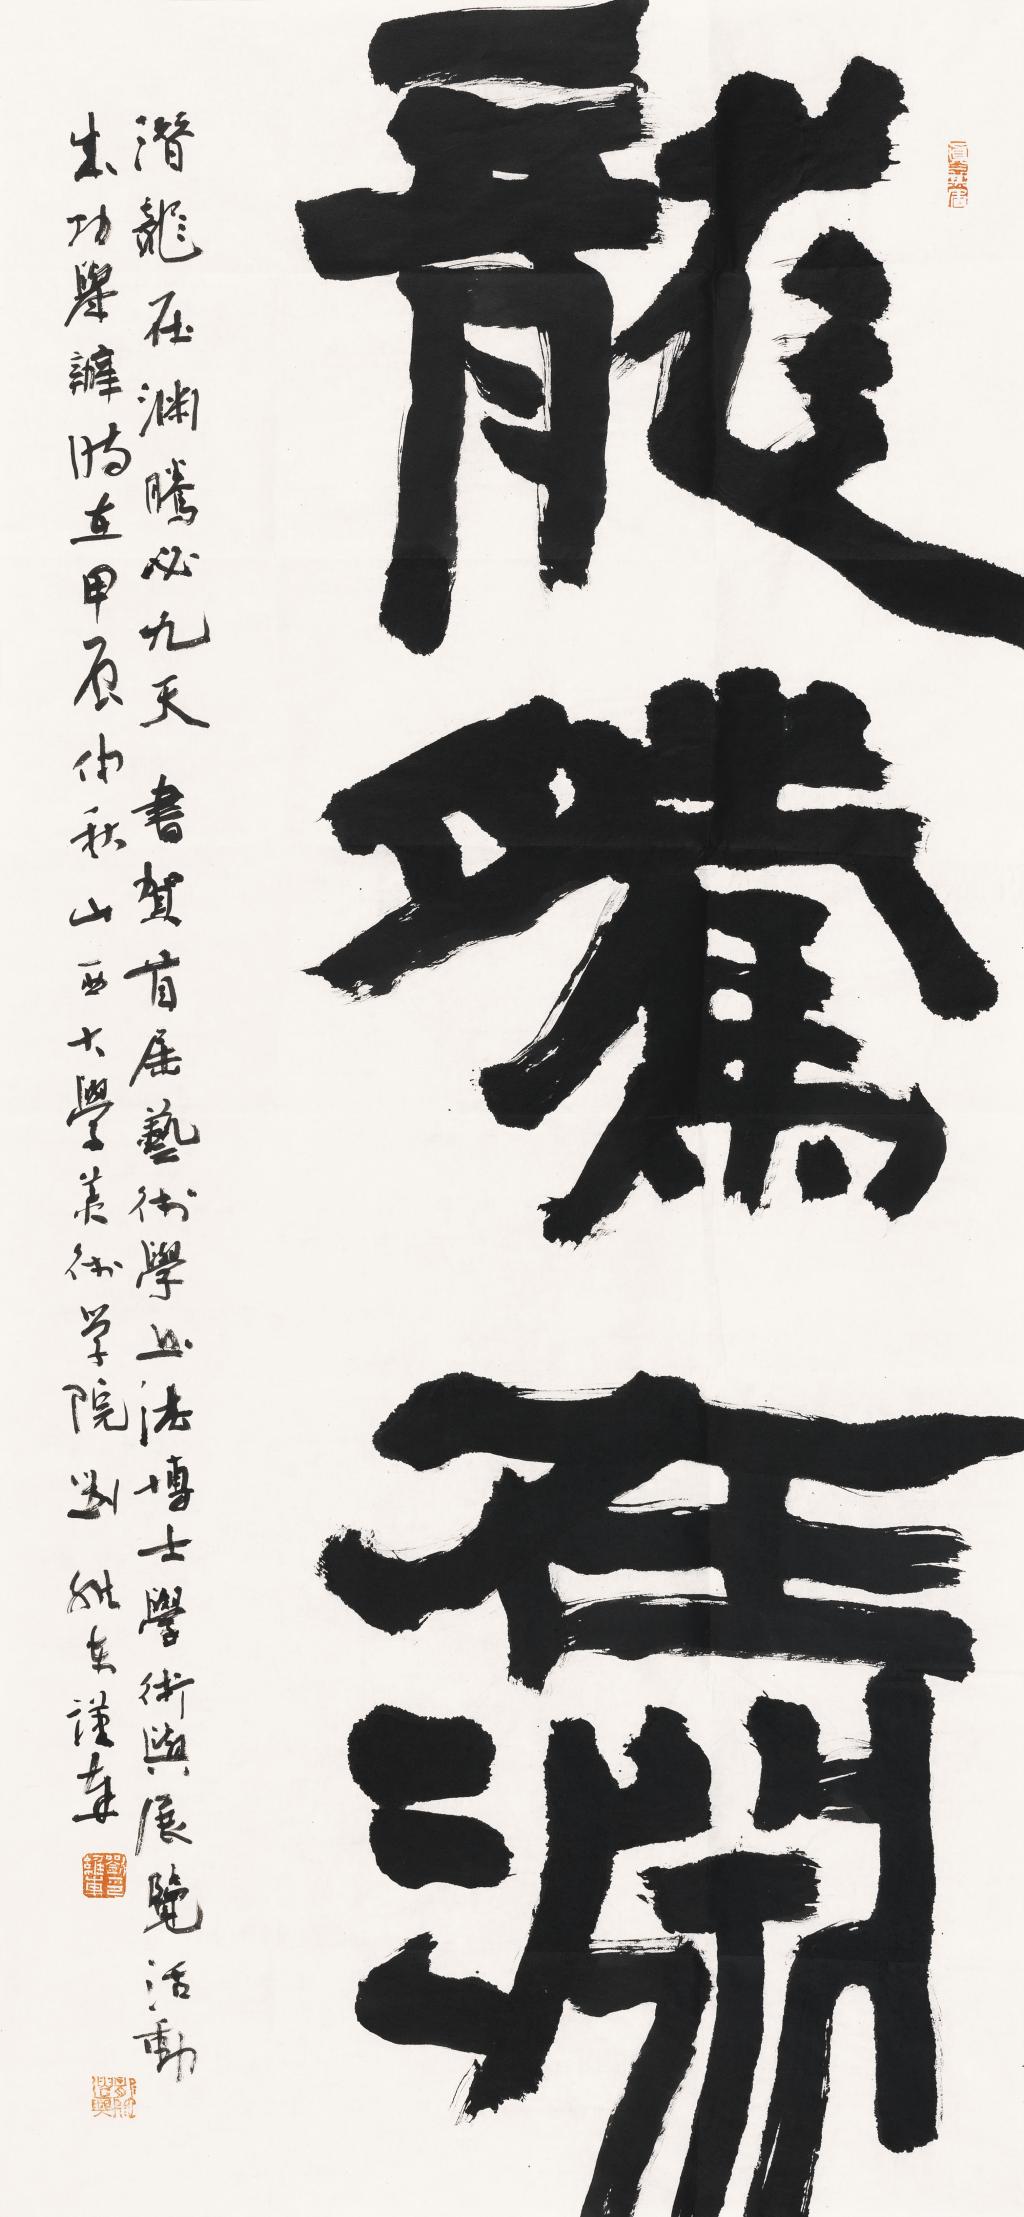 龍騰在淵
潛龍在淵騰必九天 書賀首届藝術學書法博士學術與展覽活動
成功舉辦時在甲辰仲秋山西大學美術学院劉維東謹奉
劉維東印